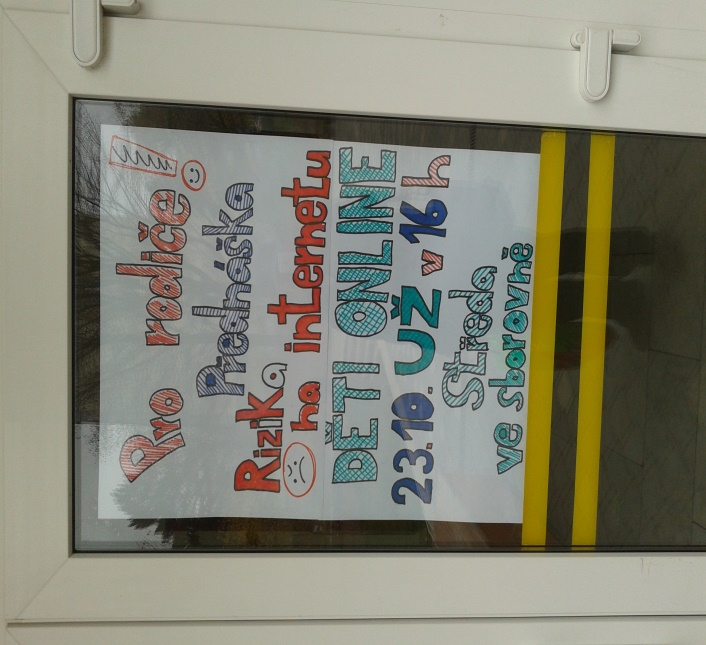 Pro rodiče!
Přednáška
Rizika
na internetu
DĚTI ONLINE
23.10. UŽ v 16 h
Středa
ve sborovně